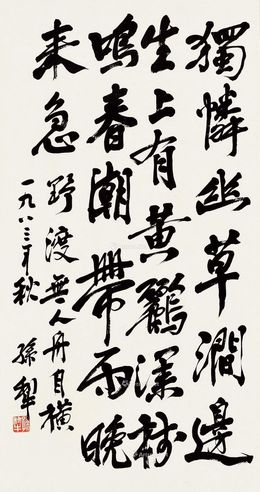 獨憐幽草澗邊
生上有黃鸝深樹
鳴春潮帶雨晚
来急
野渡無人舟自横
一九八三年秋
孫犁